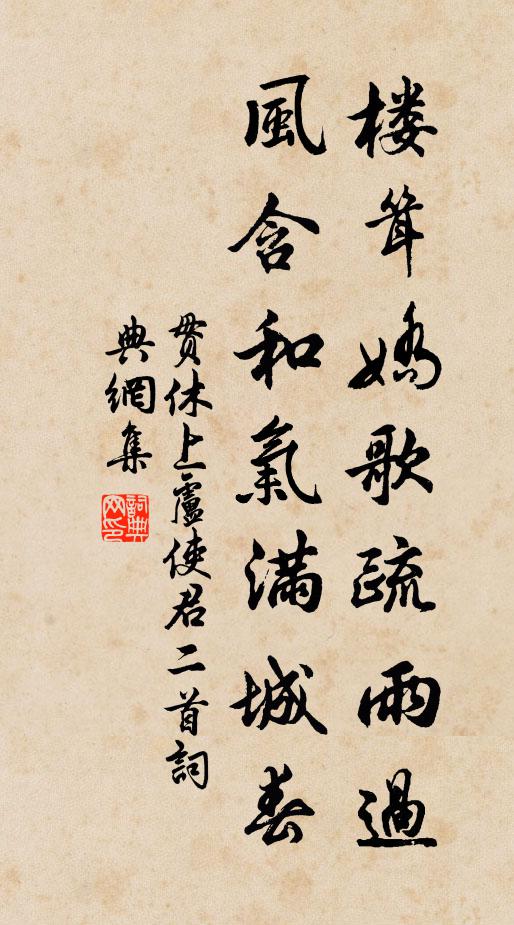 楼耸娇歌疏雨過
風含和氣满城春
贯休上盧使君二首詞
典網集
詞典網印